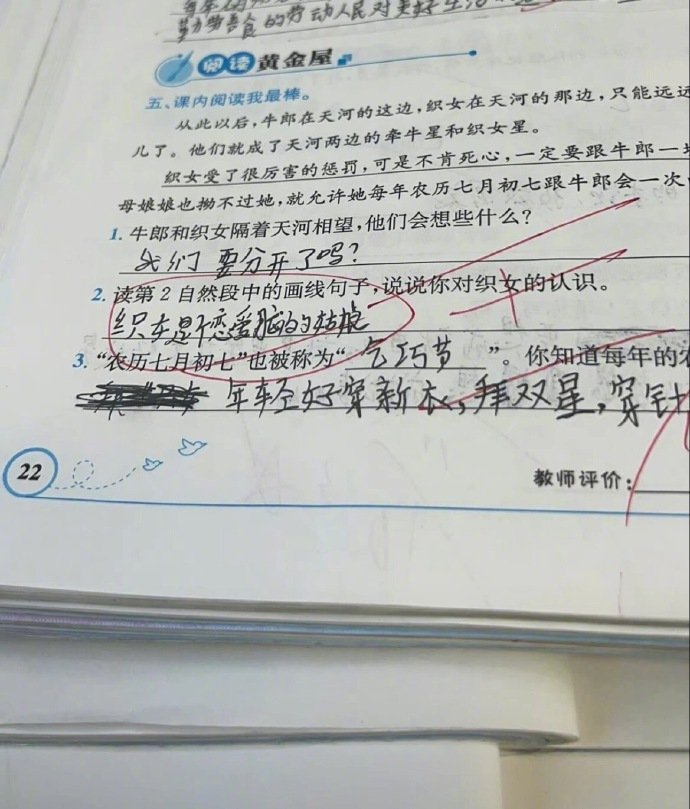 勤劳善良的劳动人民对美好生活
阅读黄金屋
五、课内阅读我最棒。
从此以后,牛郎在天河的这边,织女在天河的那边,只能远远
儿了。他们就成了天河两边的牵牛星和织女星。
织女受了很厉害的惩罚,可是不肯死心,一定要跟牛郎一块
母娘娘也拗不过她,就允许她每年农历七月初七跟牛郎会一次
1. 牛郎和织女隔着天河相望,他们会想些什么?
我们要分开了吗?
2. 读第2自然段中的画线句子,说说你对织女的认识。
织女是个恋爱脑的姑娘
3. “农历七月初七”也被称为“乞巧节”。你知道每年的农
年轻好穿新衣,拜双星,穿针
22
教师评价: